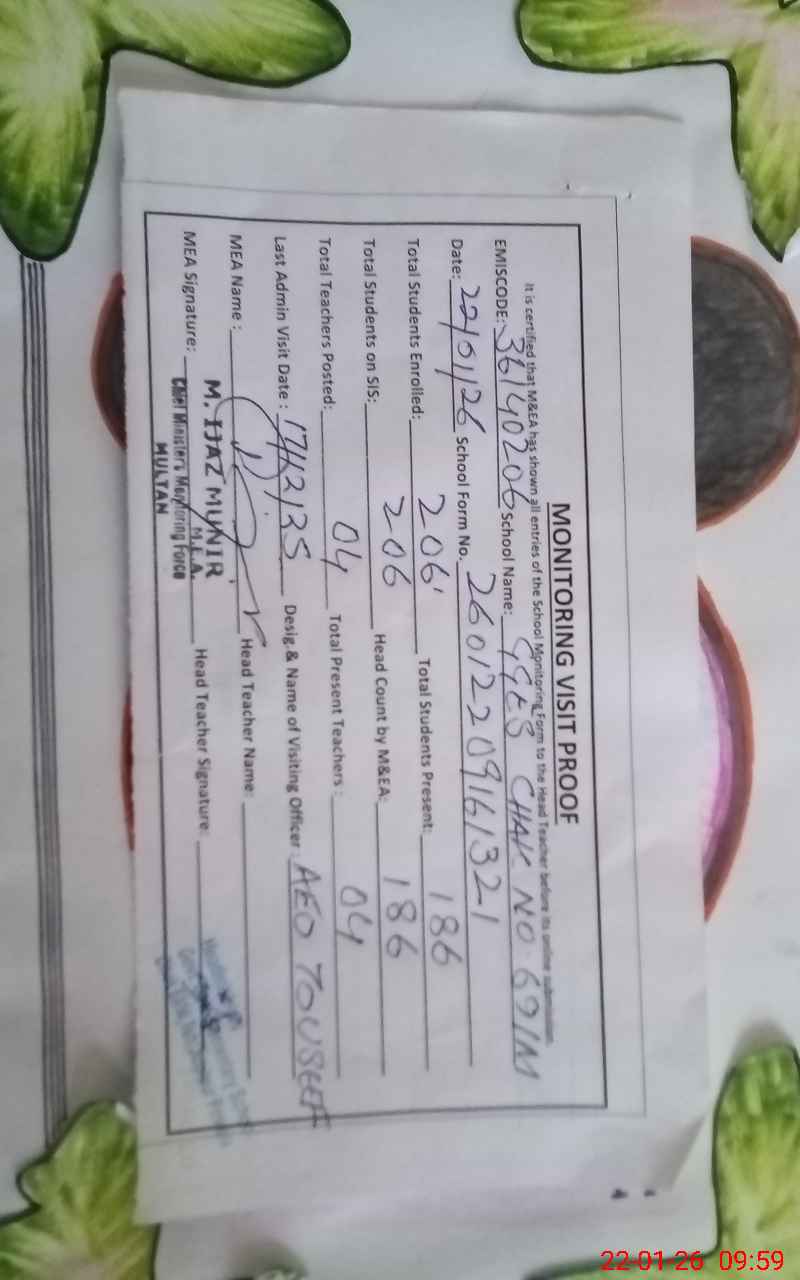 MONITORING VISIT PROOF
It is certified that M&EA has shown all entries of the School Monitoring Form to the Head Teacher before its online submission
EMISCODE: 36140206 School Name: GGES CHAK NO. 69/M
Date: 22/01/26 School Form No. 26012209161321
Total Students Enrolled: 206 Total Students Present: 186
Total Students on SIS: 206 Head Count by M&EA: 186
Total Teachers Posted: 04 Total Present Teachers : 04
Last Admin Visit Date : 17/12/25 Desig & Name of Visiting Officer : AEO TOUSEEF
MEA Name : Head Teacher Name:
MEA Signature: Head Teacher Signature:
M. IJAZ MUNIR
M.E.A.
Chief Ministers Monitoring Force
MULTAN
22-01-26 09:59